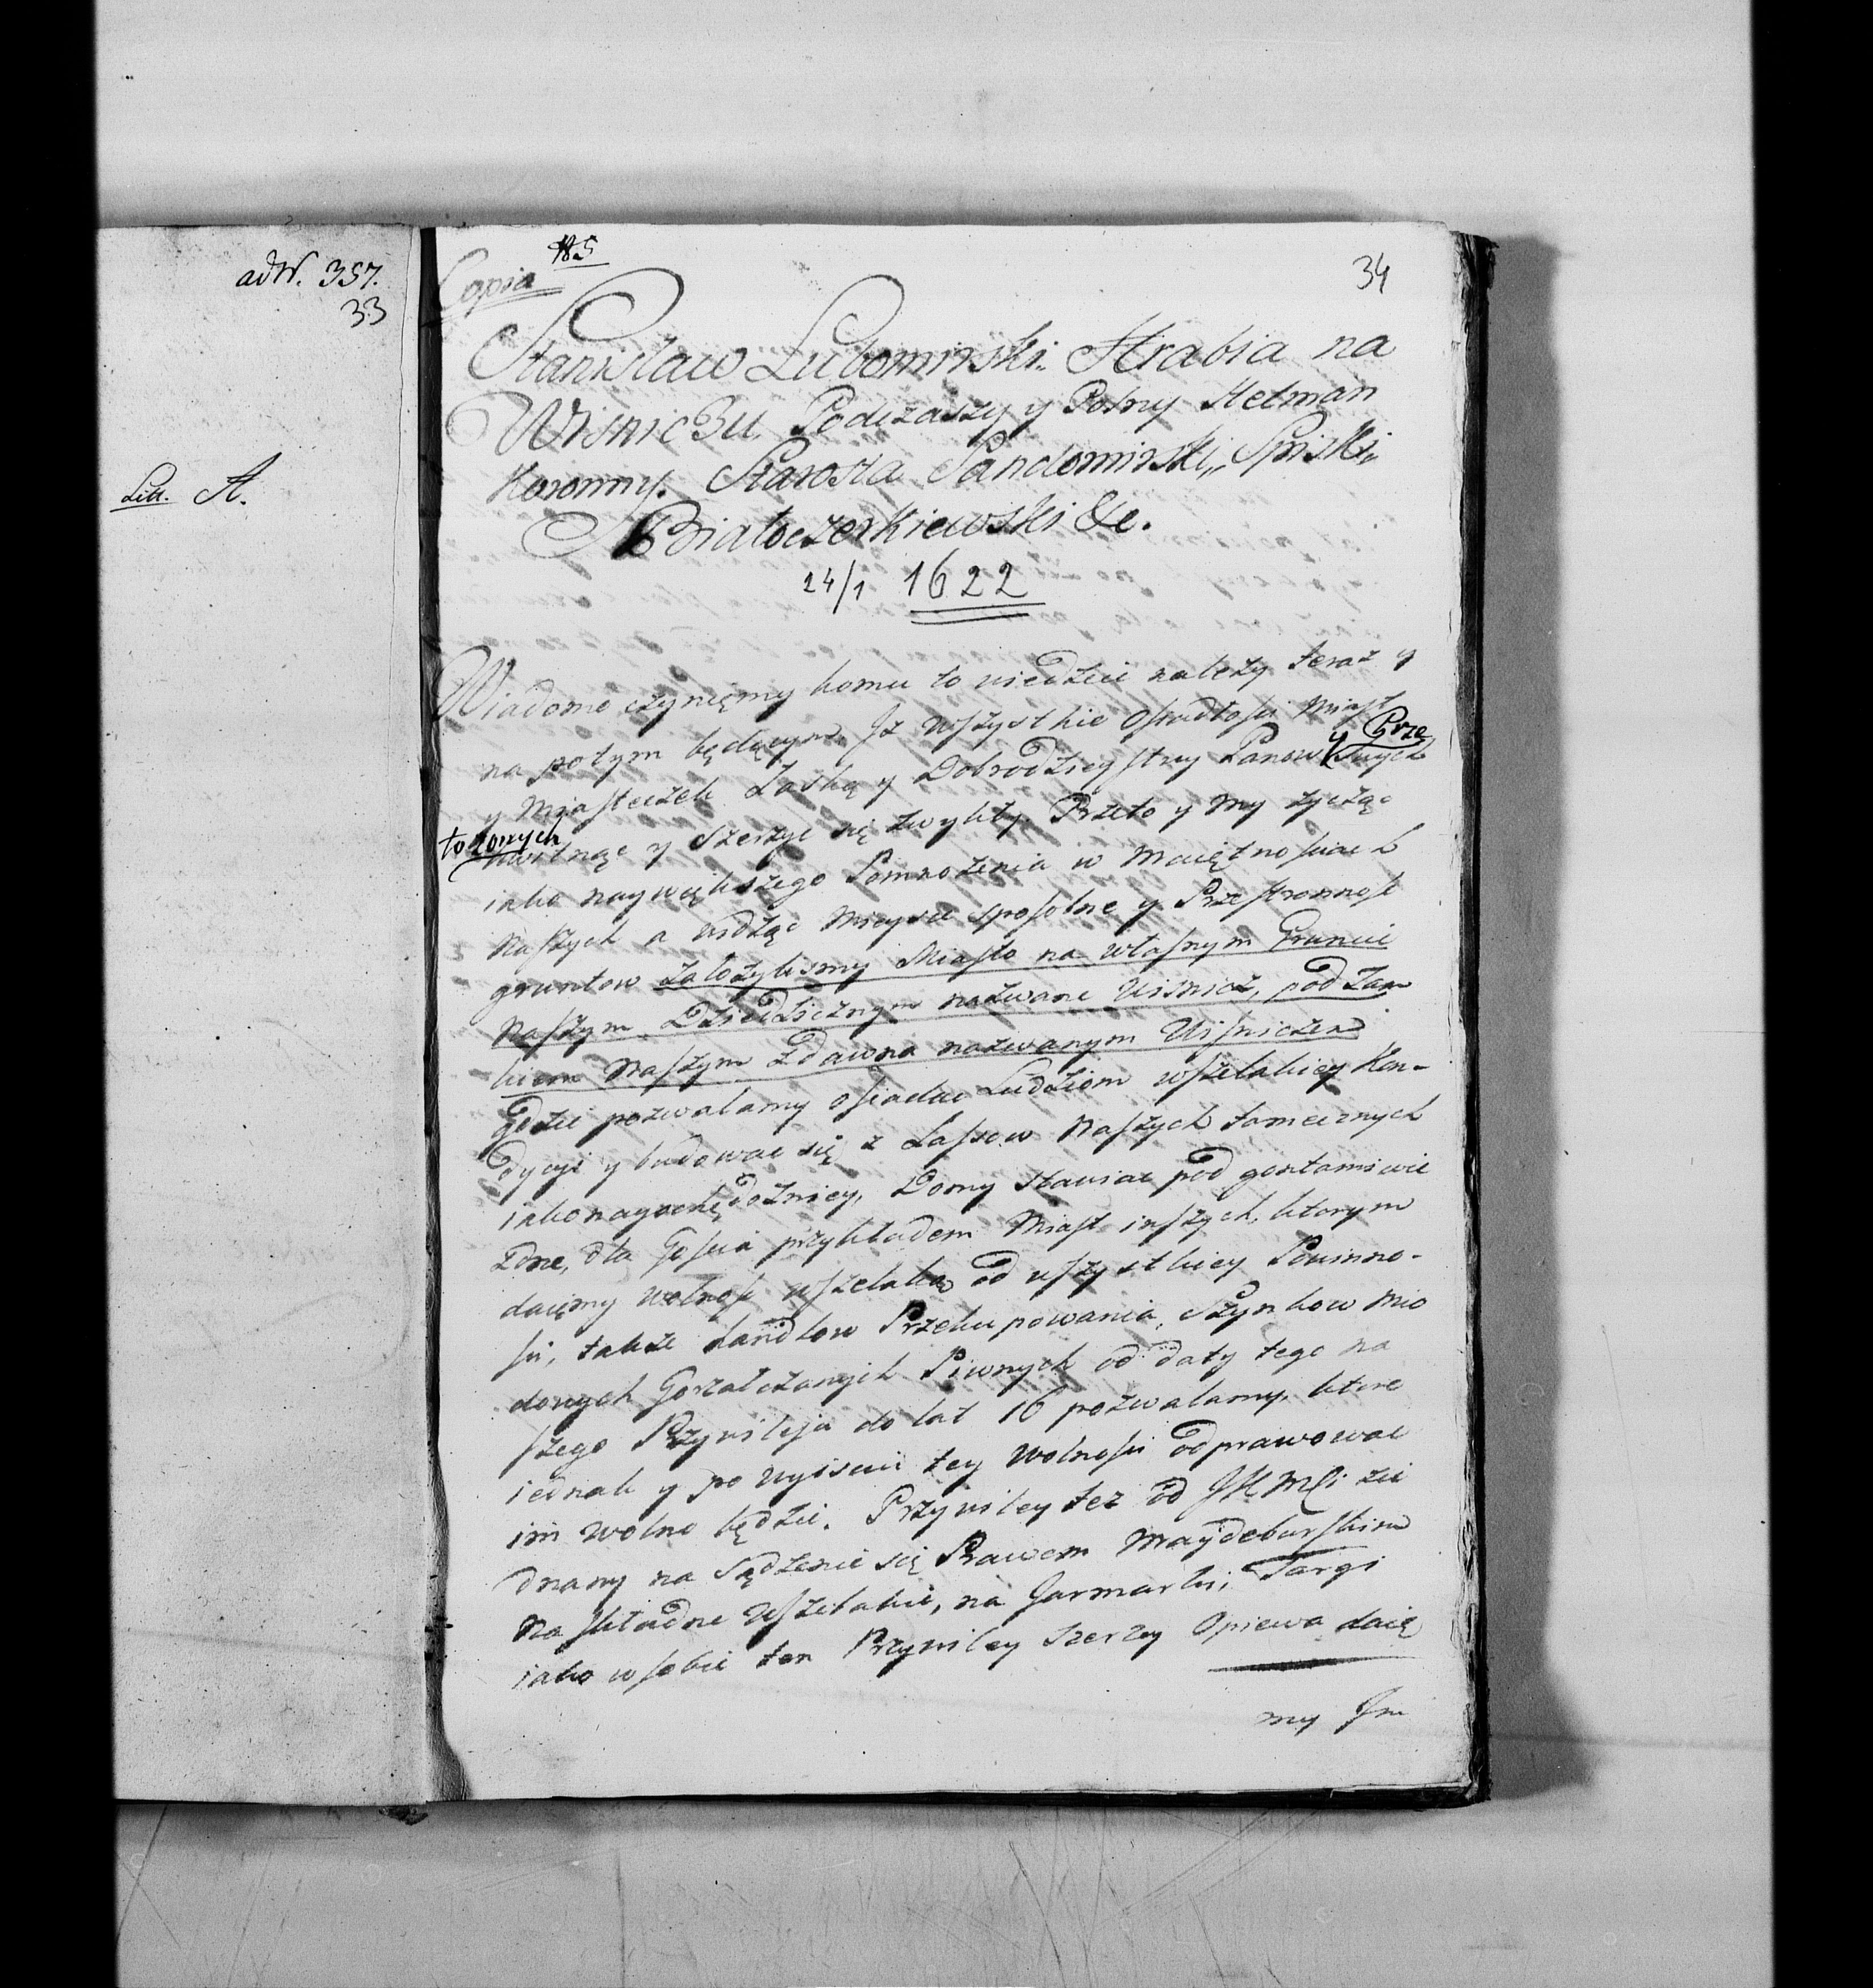 adN. 357.
33
Litt. A.
185
34
Copia
Stanisław Lubomirski Hrabia na
Wisniczu Podczaszy y Polny Hetman
Koronny. Starosta Sandomirski, Spiski,
Białoczerkiewski &c.
24/1 1622
Wiadomo czynięmy komu to wiedziec należy teraz y
na potym będącym, Jż wszystkie Osiadłosci Miast
y Miasteczek Łaską y Dobrodzieystwy Panow swych y Prze
łożonych kwitnąc y szerzyc się zwykły. Przeto y my życząc
iako naywiększego Pomnożenia w Maiętnosciach
Naszych a widząc mieysce sposobne y Przestronnosc
gruntow założylismy Miasto na własnym Gruncie
Naszym Dziedzicznym nazwane Wisnicz, pod Zam
kiem Naszym zdawna nazwanym Wisniczem
gdzie pozwalamy osiadac Ludziom wszelakiey Kon-
dycyi y budowac się z Lassow Naszych tamecznych
iako nayochędożniey, Domy stawiac pod gontami wie
zdne, dla Goscia przykładem Miast inszych, ktorym
daięmy wolnosc wszelaką od wszystkiey Powinno-
sci, także handlow Przekupowania, Szynkow Mio
dowych Gorzałczanych Piwnych od daty tego na
szego Przywileja do lat 16 pozwalamy, ktore
iednak y po wyisciu tey Wolnosci odprawowac
im wolno będzie. Przywiley tez od JKMCi zie
dnany na Sądzenie się Prawem Maydeburskim
na składne wszelakie, na Jarmarki, Targi
iako w sobie ten Przywiley szerzey Opiewa daię
my Jm